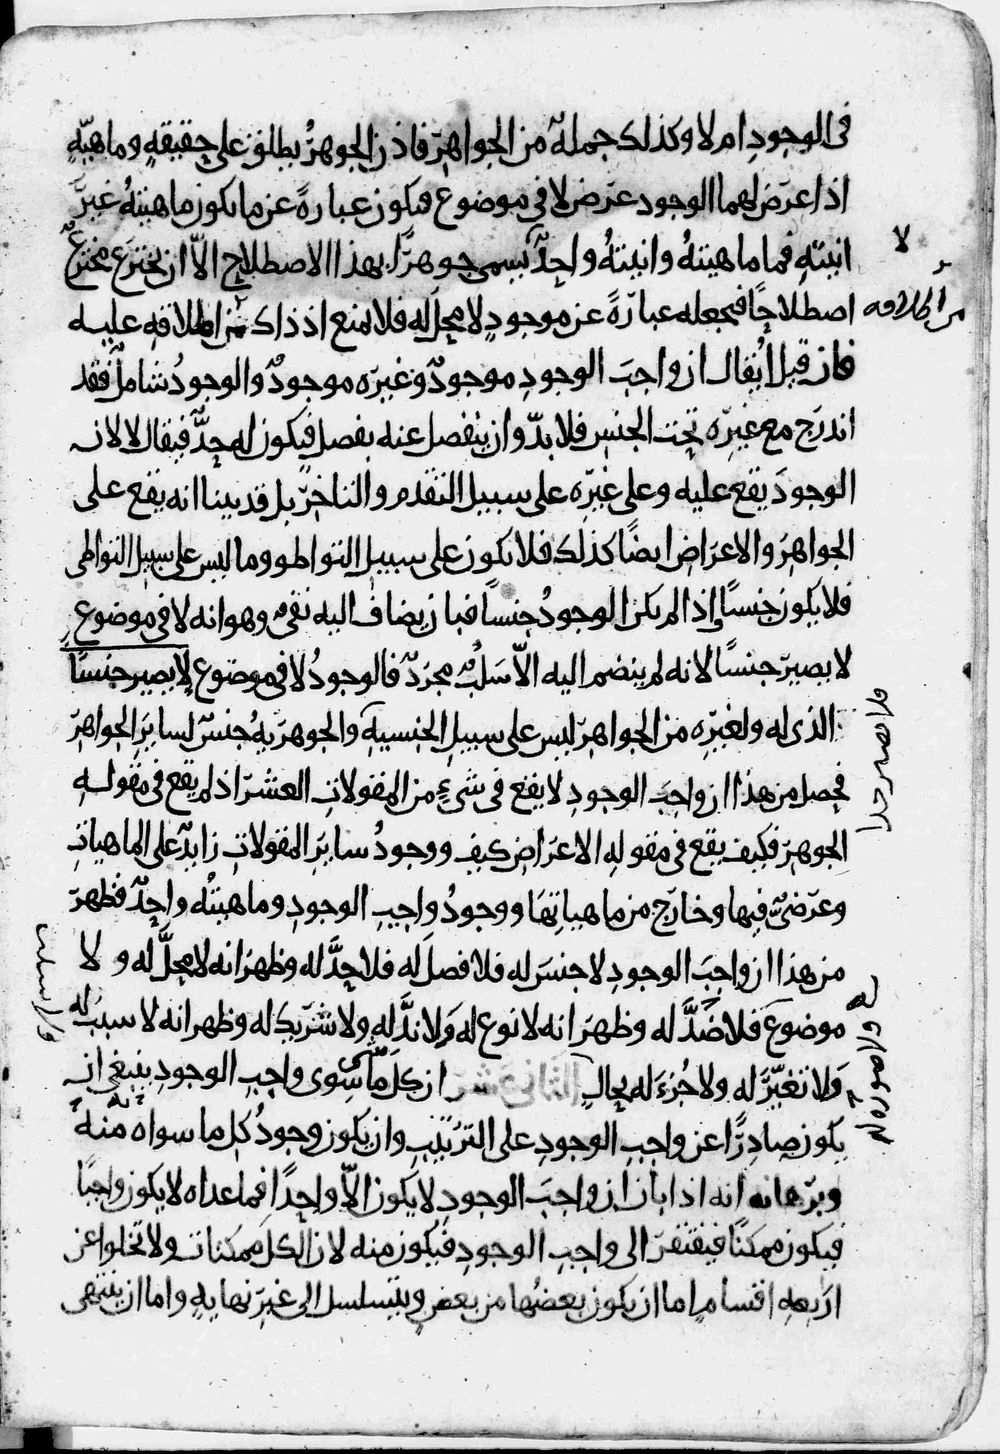 فى الوجودِ ام لا وكذلك جملة من الجواهر فاذن الجوهرُ يطلق على حقيقةٍ وماهيّةٍ
اذا عرَض لهما الوجود عرَض لا فى موضوع فيكون عبارةً عن ما يكون ماهيتهُ غيرَ
انيتهِ فما ماهيتهُ وانيتهُ واحدٌ يسمى جوهرًا بهذا الاصطلاح الاّ ان يخترع مخترعٌ
لا
اصطلاحًا فيجعله عبارةً عن موجودٍ لا محلّ له فلا نمنع اذ ذاك من اطلاقهِ عليه
من اطلاقه
فان قيل ايُقال ان واجبَ الوجودِ موجودٌ وغيره موجودٌ والوجودُ شاملٌ فقد
اندرَج مع غيرِه تحت الجنس فلا بدّ وان ينفصل عنه بفصل فيكون له حدٌّ فيقال لا لان
الوجودَ يقع عليه وعلى غيرِه على سبيل التقدم والتاخّر بل قد بينا انه يقع على
الجواهر والاعرَاض ايضًا كذلك فلا يكون على سبيل التواطو وما ليس على سبيل التواطى
فلا يكون جنسًا واذا لم يكن الوجودُ جنسًا فبان يضاف اليه نفىٌ وهو انه لا فى موضوعٍ
لا يصير جنسًا لانه لم ينضم اليه الاّ سَلبٌ مجرّدٌ فالوجودُ لا فى موضوع لا يصير جنسًا
الذى له ولغيرِه من الجواهرِ ليس على سبيل الجنسيةِ والجوهريةُ جنسٌ لسايرَ الجواهرِ
فحصل من هذا ان واجبَ الوجودِ لا يقع فى شىءٍ من المقولاتِ العشر اذ لم يقع فى مقولهِ
الجوهرِ فكيف يقع فى مقولهِ الاعرَاض كيف ووجودُ سايرَ المقولاتِ زايدٌ على الماهياتِ
وعرَضىٌّ فيها وخارج من ماهياتِها ووجودُ واجبِ الوجودِ وماهيتُه واحدٌ فظهرَ
من هذا ان واجبَ الوجودِ لا جنسَ له فلا فصلَ له فلا حدَّ له وظهرَ انه لا محلَّ له ولا
موضوعَ فلا ضدَّ له وظهرَ انه لا نوع له وَلا ندَّ له ولا شريك له وظهر انه لا سببَ له
وَلا تغيّرَ له ولا جُزءَ له بحالٍ الثانى عشر ان كلَ ما سِوى واجبِ الوجودِ ينبغى ان
يكون صادِرًا عن واجبِ الوجودِ على الترتيب وان يكون وجودُ كلِ ما سواه منهُ
وبرهانه انه اذا بان ان واجبَ الوجودِ لا يكون الاّ واحِدًا فما عداه لا يكون واجبًا
فيكون ممكنًا فيفتقرُ الى واجبِ الوجودِ فيكون منه لان الكلَ ممكنات ولا تخلوا عن
اربعهِ اقسامٍ اما ان يكون بعضُها من بعضٍ ويتسلسل الى غيرَ نهايهٍ واما ان ينتهى